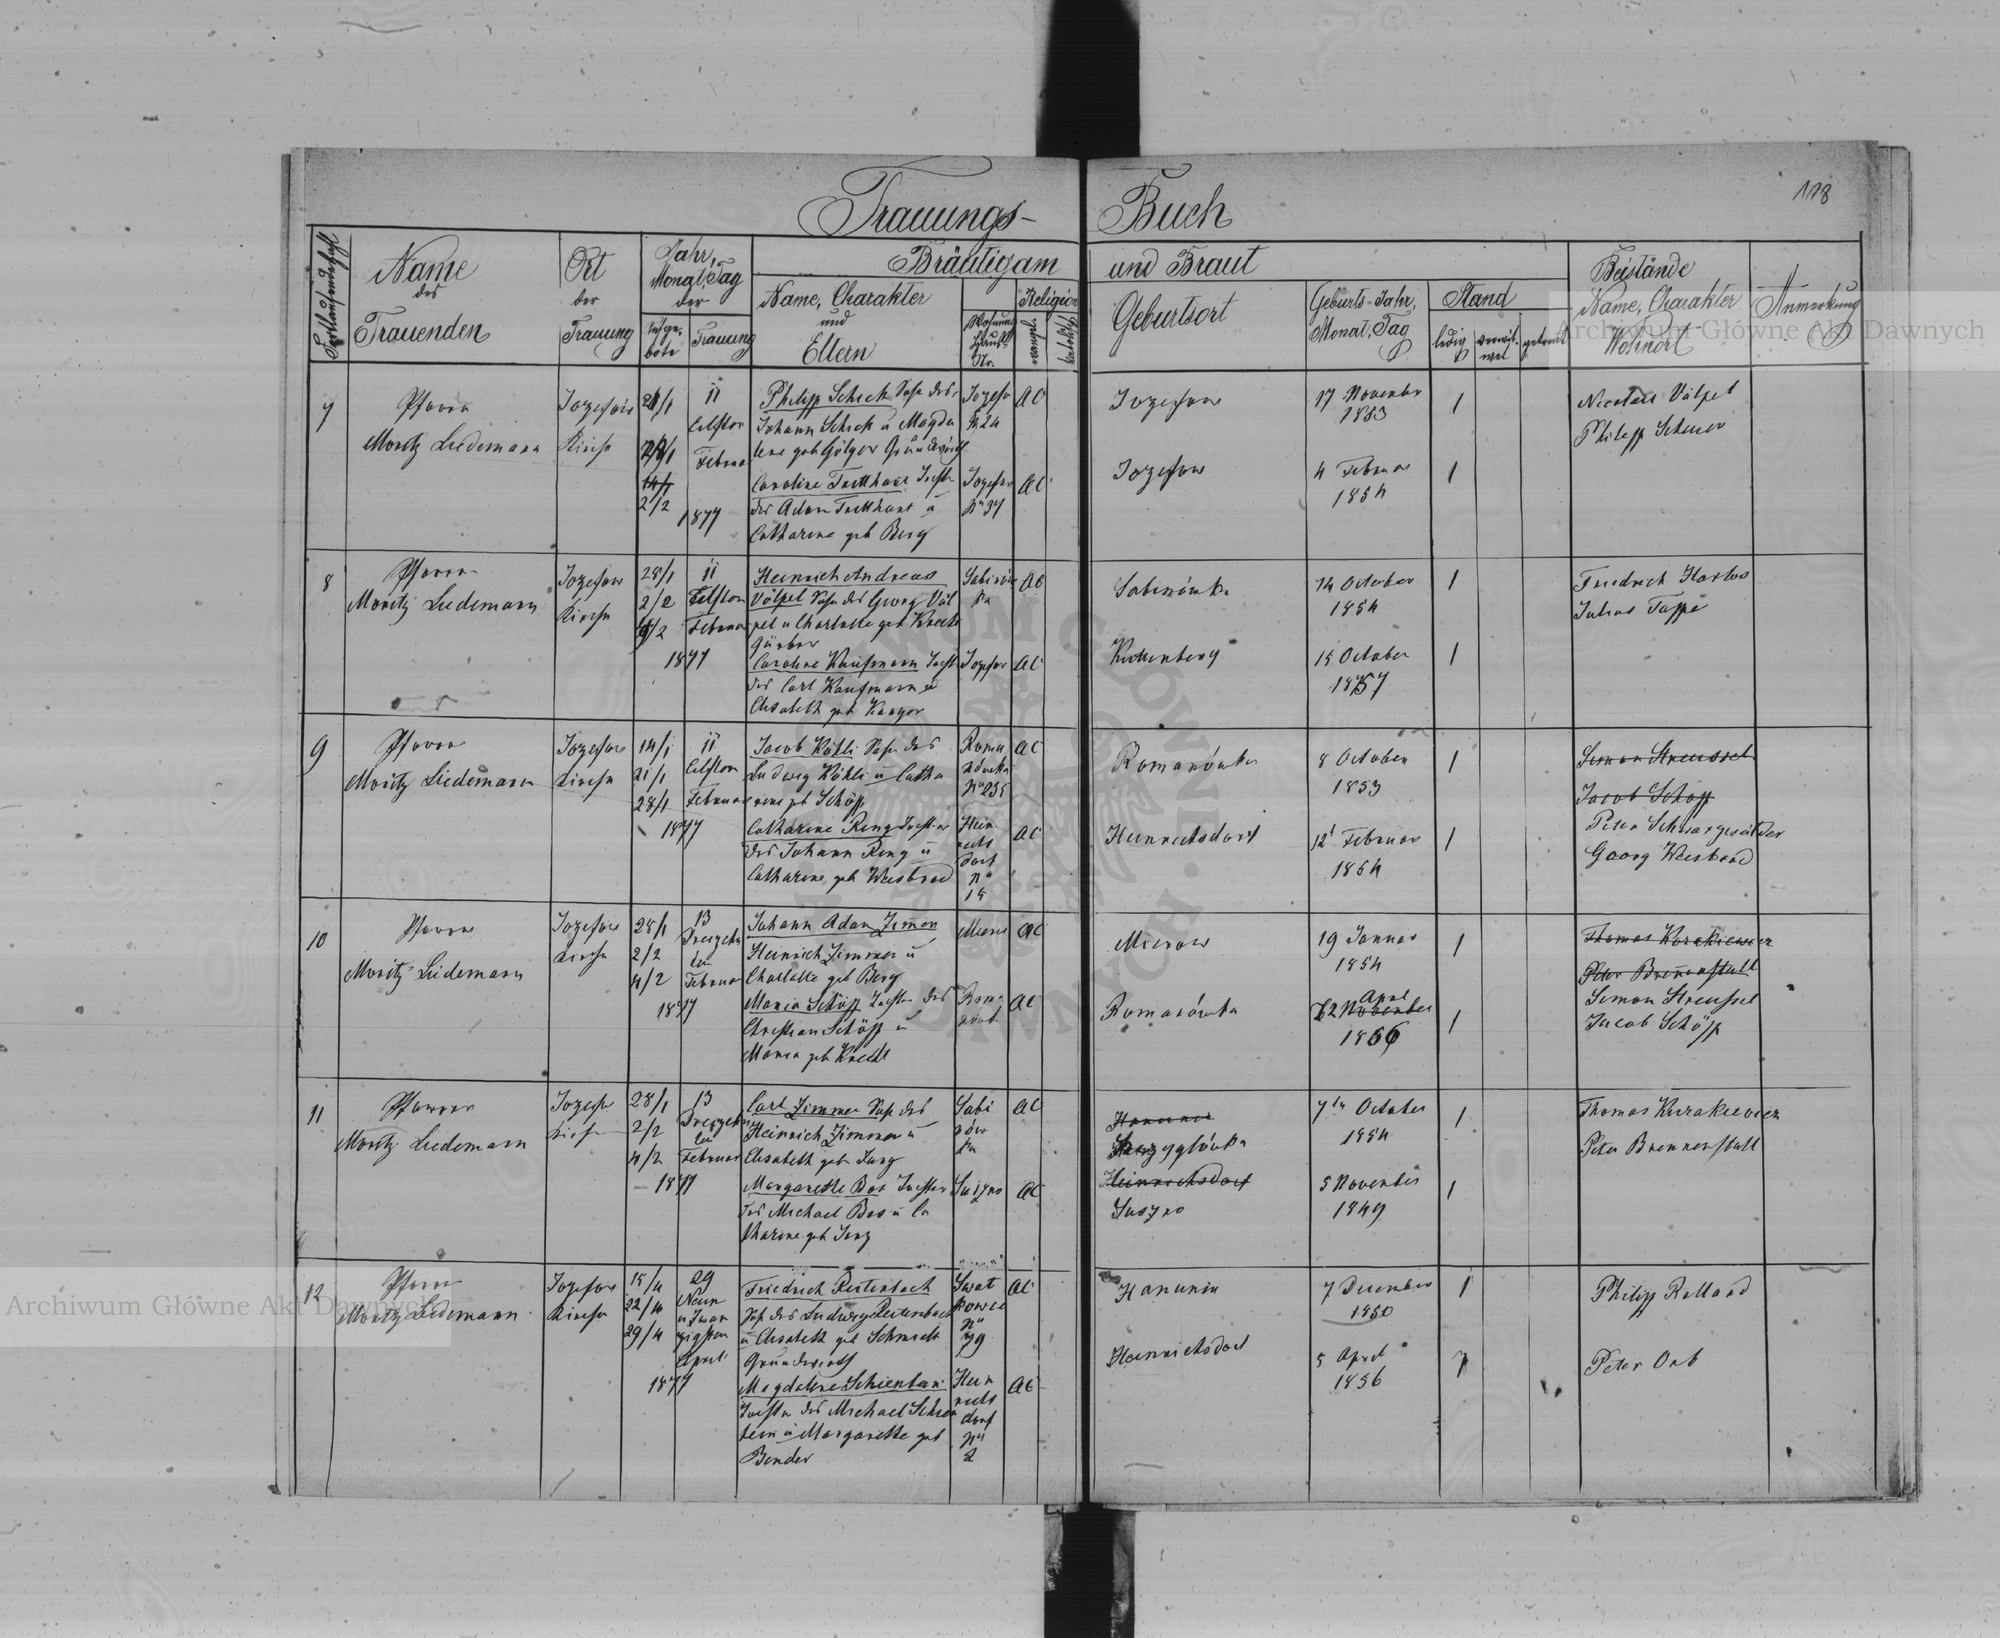 118
Trauungs- Buch
Fortlaufende Zahl
Name des Trauenden
Ort der Trauung
Jahr, Monat, Tag der
Aufgebote
Trauung
Bräutigam und Braut
Name, Charakter und Eltern
Wohnung Haus Nr.
Religion
evangel.
kathol.
Geburtsort
Geburts-Jahr, Monat, Tag
Stand
ledig
verwitwet
getrennt
Beistände
Name, Charakter
Wohnort
Anmerkung
7
Pfarrer
Moritz Liedemann
Jozefow
Kirche
21/1
28/1
2/2
11
Eilften
Februar
1877
Philipp Schick Sohn des
Johann Schick u Magda
lene geb Gölger Grundwirth
Jozefow
No 24
AC
Jozefow
17 November
1853
1
Nicolaus Völpel
Philipp Scherer
Caroline Tretthart Tochter
des Adam Tretthart u
Catharine geb Berg
Jozefow
No 37
AC
Jozefow
4 Februar
1854
1
8
Pfarrer
Moritz Liedemann
Jozefow
Kirche
28/1
2/2
4/2
11
Eilften
Februar
1877
Heinrich Andreas
Völpel Sohn des Georg Völ
pel u Charlotte geb Knecht
Gärber
Sabinów
ka
AC
Sabinówka
14 October
1854
1
Friedrich Harlos
Julius Tappe
Caroline Kaufmann Tocht
des Carl Kaufmann u
Elisabeth geb Kanger
Jozefow
AC
Kuttenberg
15 October
1857
1
9
Pfarrer
Moritz Liedemann
Jozefow
Kirche
14/1
21/1
28/1
11
Eilften
Februar
1877
Jacob Köhli Sohn des
Ludwig Köhli u Catha
rine geb Schöpp
Roma
nówka
No 235
AC
Romanówka
8 October
1853
1
Simon Streussel
Jacob Schöpp
Peter Schwarzwälder
Georg Weisbrod
Catharine Ring Tochter
des Johann Ring u
Catharine geb Weisbrod
Hein
richs
dorf
No
15
AC
Heinrichsdorf
12 Februar
1854
1
10
Pfarrer
Moritz Liedemann
Jozefow
Kirche
28/1
2/2
4/2
13
Dreizehn
ten
Februar
1877
Johann Adam Zimmer
Heinrich Zimmer u
Charlotte geb Berg
Mierow
AC
Mierow
19 Januar
1854
1
Thomas Kurakiewicz
Peter Brennenstull
Simon Streussel
Jacob Schöpp
Maria Schöpp Tochter des
Christian Schöpp u
Maria geb Knecht
Roma
nówk
AC
Romanówka
April
12 November
1856
1
11
Pfarrer
Moritz Liedemann
Jozefow
Kirche
28/1
2/2
4/2
13
Dreizehn
ten
Februar
1877
Carl Zimmer Sohn des
Heinrich Zimmer u
Elisabeth geb Jung
Sabi
nów
ka
AC
Hanunin
7ten October
1854
1
Thomas Kurakiewicz
Peter Brennenstull
Margarethe Bos Tochter
des Michael Bos u Ca
tharine geb Jung
Suszno
AC
Heinrichsdorf
Suszno
5 November
1849
1
12
Pfarrer
Moritz Liedemann
Jozefow
Kirche
15/4
22/4
29/4
29
Neun
u Zwan
zigsten
April
1877
Friedrich Reitenbach
Sohn des Ludwig Reitenbach
u Elisabeth geb Schmidt
Grundwirth
No
79
AC
Hanunin
7 December
1850
1
Philipp Rolland
Magdalene Schienbein
Tochter des Michael Schien
bein u Margarethe geb
Bender
Hein
richs
dorf
No
2
AC
Heinrichsdorf
5 April
1856
1
Peter Orb
Archiwum Główne Akt Dawnych
Archiwum Główne Akt Dawnych